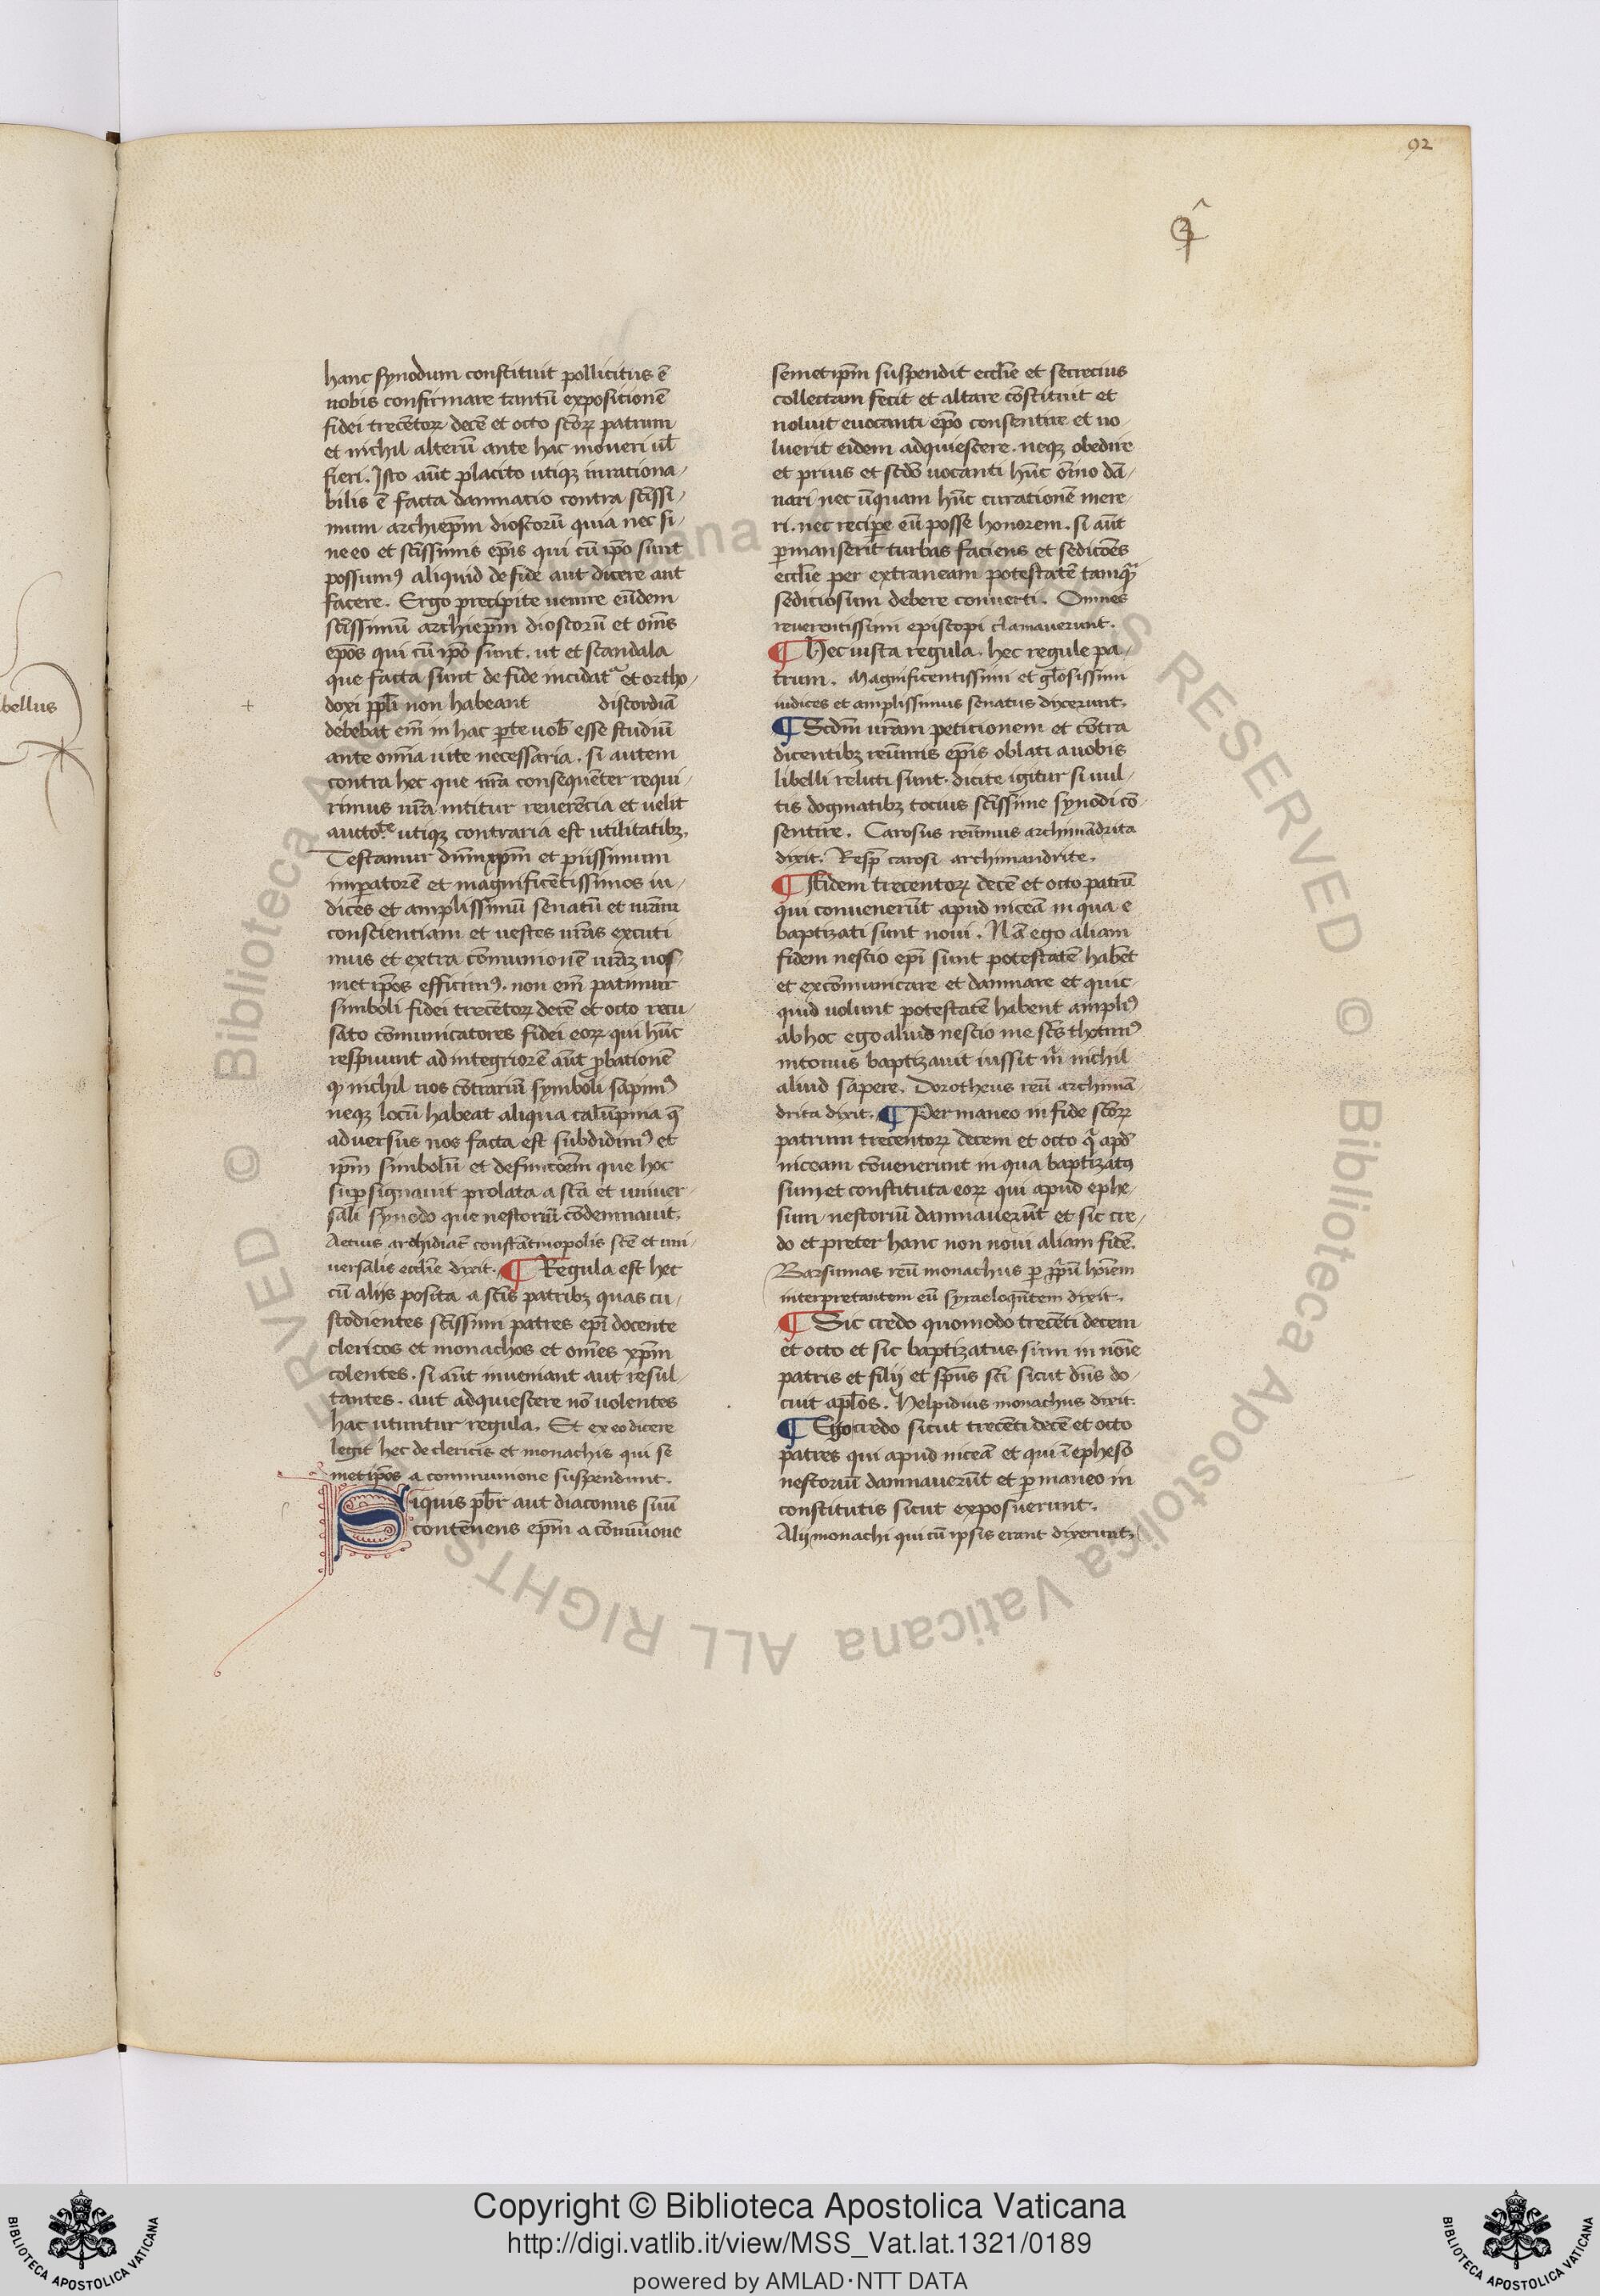 92
bellus
hanc synodum constituit pollicitus ē
nobis confirmare tantū expositionē
fidei trecētoꝝ decē et octo sc̄oꝝ patrum
et nichil alterū ante hac moueri ul̄
fieri. Isto aūt placito utiqꝫ irrationa-
bilis ē facta damnatio contra sc̄issi-
mum archiep̄m dioscorū quia nec si-
ne eo et sc̄issimis ep̄is qui cū ip̄o sunt
possumꝰ aliquid de fide aut dicere aut
facere. Ergo precipite uenire eūdem
sc̄issimū archiep̄m dioscorū et om̄s
ep̄os qui cū ip̄o sunt. ut et scandala
que facta sunt de fide incidat᷑ et ortho-
doxi ppl̄i non habeant discordiā
debebat em̄ in hac ꝑte uob̄ esse studiū
ante om̄ia uite necessaria. si autem
contra hec que nr̄a consequēter requi-
rimus ur̄a nititur reuerēcia et uelit
aucto.te utiqꝫ contraria est utilitatibꝫ.
Testamur dn̄m xp̄m et piissimum
imꝑatorē et magnificētissimos iu-
dices et amplissimū senatū et ur̄am
conscientiam et uestes ur̄as excuti
mus et extra cōmunionē ur̄aꝫ nos-
met ip̄os efficimꝰ. non em̄ patimur
simboli fidei trecētoꝝ decē et octo recu-
sato cōmunicatores fidei eoꝝ qui hūc
respuunt ad integriorē aūt ꝓbationē
qꝫ nichil nos cōtrariū symboli sapimꝰ
neqꝫ locū habeat aliqua calūpnia q̄
aduersus nos facta est subdidimꝰ et
ip̄m simbolū et definicōem que hoc
suꝑsignauit prolata a sc̄a et uniuer-
sali synodo que nestoriū cōdemnauit.
Aetius archidiac̄ constātinopolis sc̄e et uni-
uersalis eccl̄ie dixit. ¶ Regula est hec
cū aliis posita a sc̄is patribꝫ quas cu-
stodientes sc̄issimi patres ep̄i docente
clericos et monachos et om̄es xp̄m
colentes. si aūt inueniant aut resul-
tantes. aut adquiescere nō uolentes
hac utuntur regula. Et ex eo dicere
legit hec de clericis et monachis qui se
met ip̄os a communione suspendunt.
Siquis pb̄r aut diaconus suū
contēnens ep̄m a cōmuūone
semetip̄m suspendit eccl̄ie et secrecius
collectam fecit et altare cōstituit et
noluit euocanti ep̄o consentire et no-
luerit eidem adquiescere. neqꝫ obedire
et prius et sc̄do uocanti hūc om̄ino dā-
nari nec ūquam hūc curationē mere-
ri. nec reciꝑe eū posse honorem. si aūt
ꝑmanserit turbas faciens et sedicōes
eccl̄ie per extraneam potestatē tamq̄
sediciosum debere conuerti. Omnes
reuerentissimi episcopi clamauerunt.
¶ Hec iusta regula. hec regule pa-
trum. Magnificentissimi et gl̄osissimi
iudices et amplissimus senatus dixerunt.
¶ Scd̄m ur̄am peticionem et cōtra
dicentibꝫ reūmis ep̄is oblati a uobis
libelli relicti sunt. dicite igitur si uul-
tis dogmatibꝫ tocius sc̄issime synodi cō-
sentire. Carosus reūimus archimādrita
dixit. Resp̄ carosi archimandrite.
¶ Fidem trecentoꝝ decē et octo patrū
qui conuenerūt apud niceā in qua e
baptizati sunt noui. Nā ego aliam
fidem nescio ep̄i sunt potestatē habēt
et excōmunicare et damnare et quic-
quid uolunt potestatē habent ampliꝰ
ab hoc ego aliud nescio me sc̄s thotimꝰ
intonus baptizauit iussit m̄ nichil
aliud sapere. Dorotheus reū archimā
drita dixit. ¶ Permaneo in fide sc̄oꝝ
patrum trecentoꝝ decem et octo q̄ apd̄
niceam cōuenerunt in qua baptizatꝰ
sum et constituta eoꝝ qui apud ephe-
sum nestoriū damnauerūt et sic cre-
do et preter hanc non noui aliam fidē.
Barsumas reū monachus ꝑ pp̄iū hoīem
interpretantem eū syrae loquētem dixit.
¶ Sic credo quomodo trecēti decem
et octo et sic baptizatus sum in noīe
patris et filij et sp̄us sc̄i sicut dn̄s do-
cuit apl̄os. Helpidius monachus dixit.
¶ Ego credo sicut trecēti decē et octo
patres qui apud niceā et qui ī epheso
nestoriū damnauerūt et ꝑmaneo in
constitutis sicut exposuerunt.
Alij monachi qui cū ipsis erant dixerunt.
Copyright © Biblioteca Apostolica Vaticana
http://digi.vatlib.it/view/MSS_Vat.lat.1321/0189
powered by AMLAD·NTT DATA
BIBLIOTECA APOSTOLICA VATICANA
BIBLIOTECA APOSTOLICA VATICANA
© Biblioteca Apostolica Vaticana ALL RIGHTS RESERVED
© Biblioteca Apostolica Vaticana ALL RIGHTS RESERVED